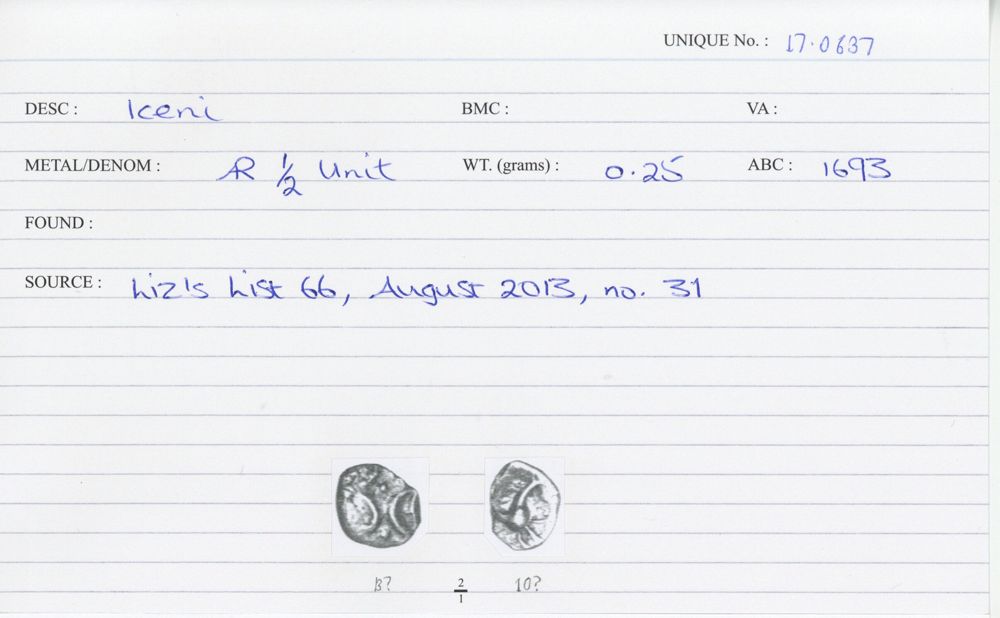 UNIQUE No. : 17.0637
DESC : Iceni BMC : VA :
METAL/DENOM : AR 1/2 Unit WT. (grams) : 0.25 ABC : 1693
FOUND :
SOURCE : Liz's List 66, August 2013, no. 31
B? 2/1 10?